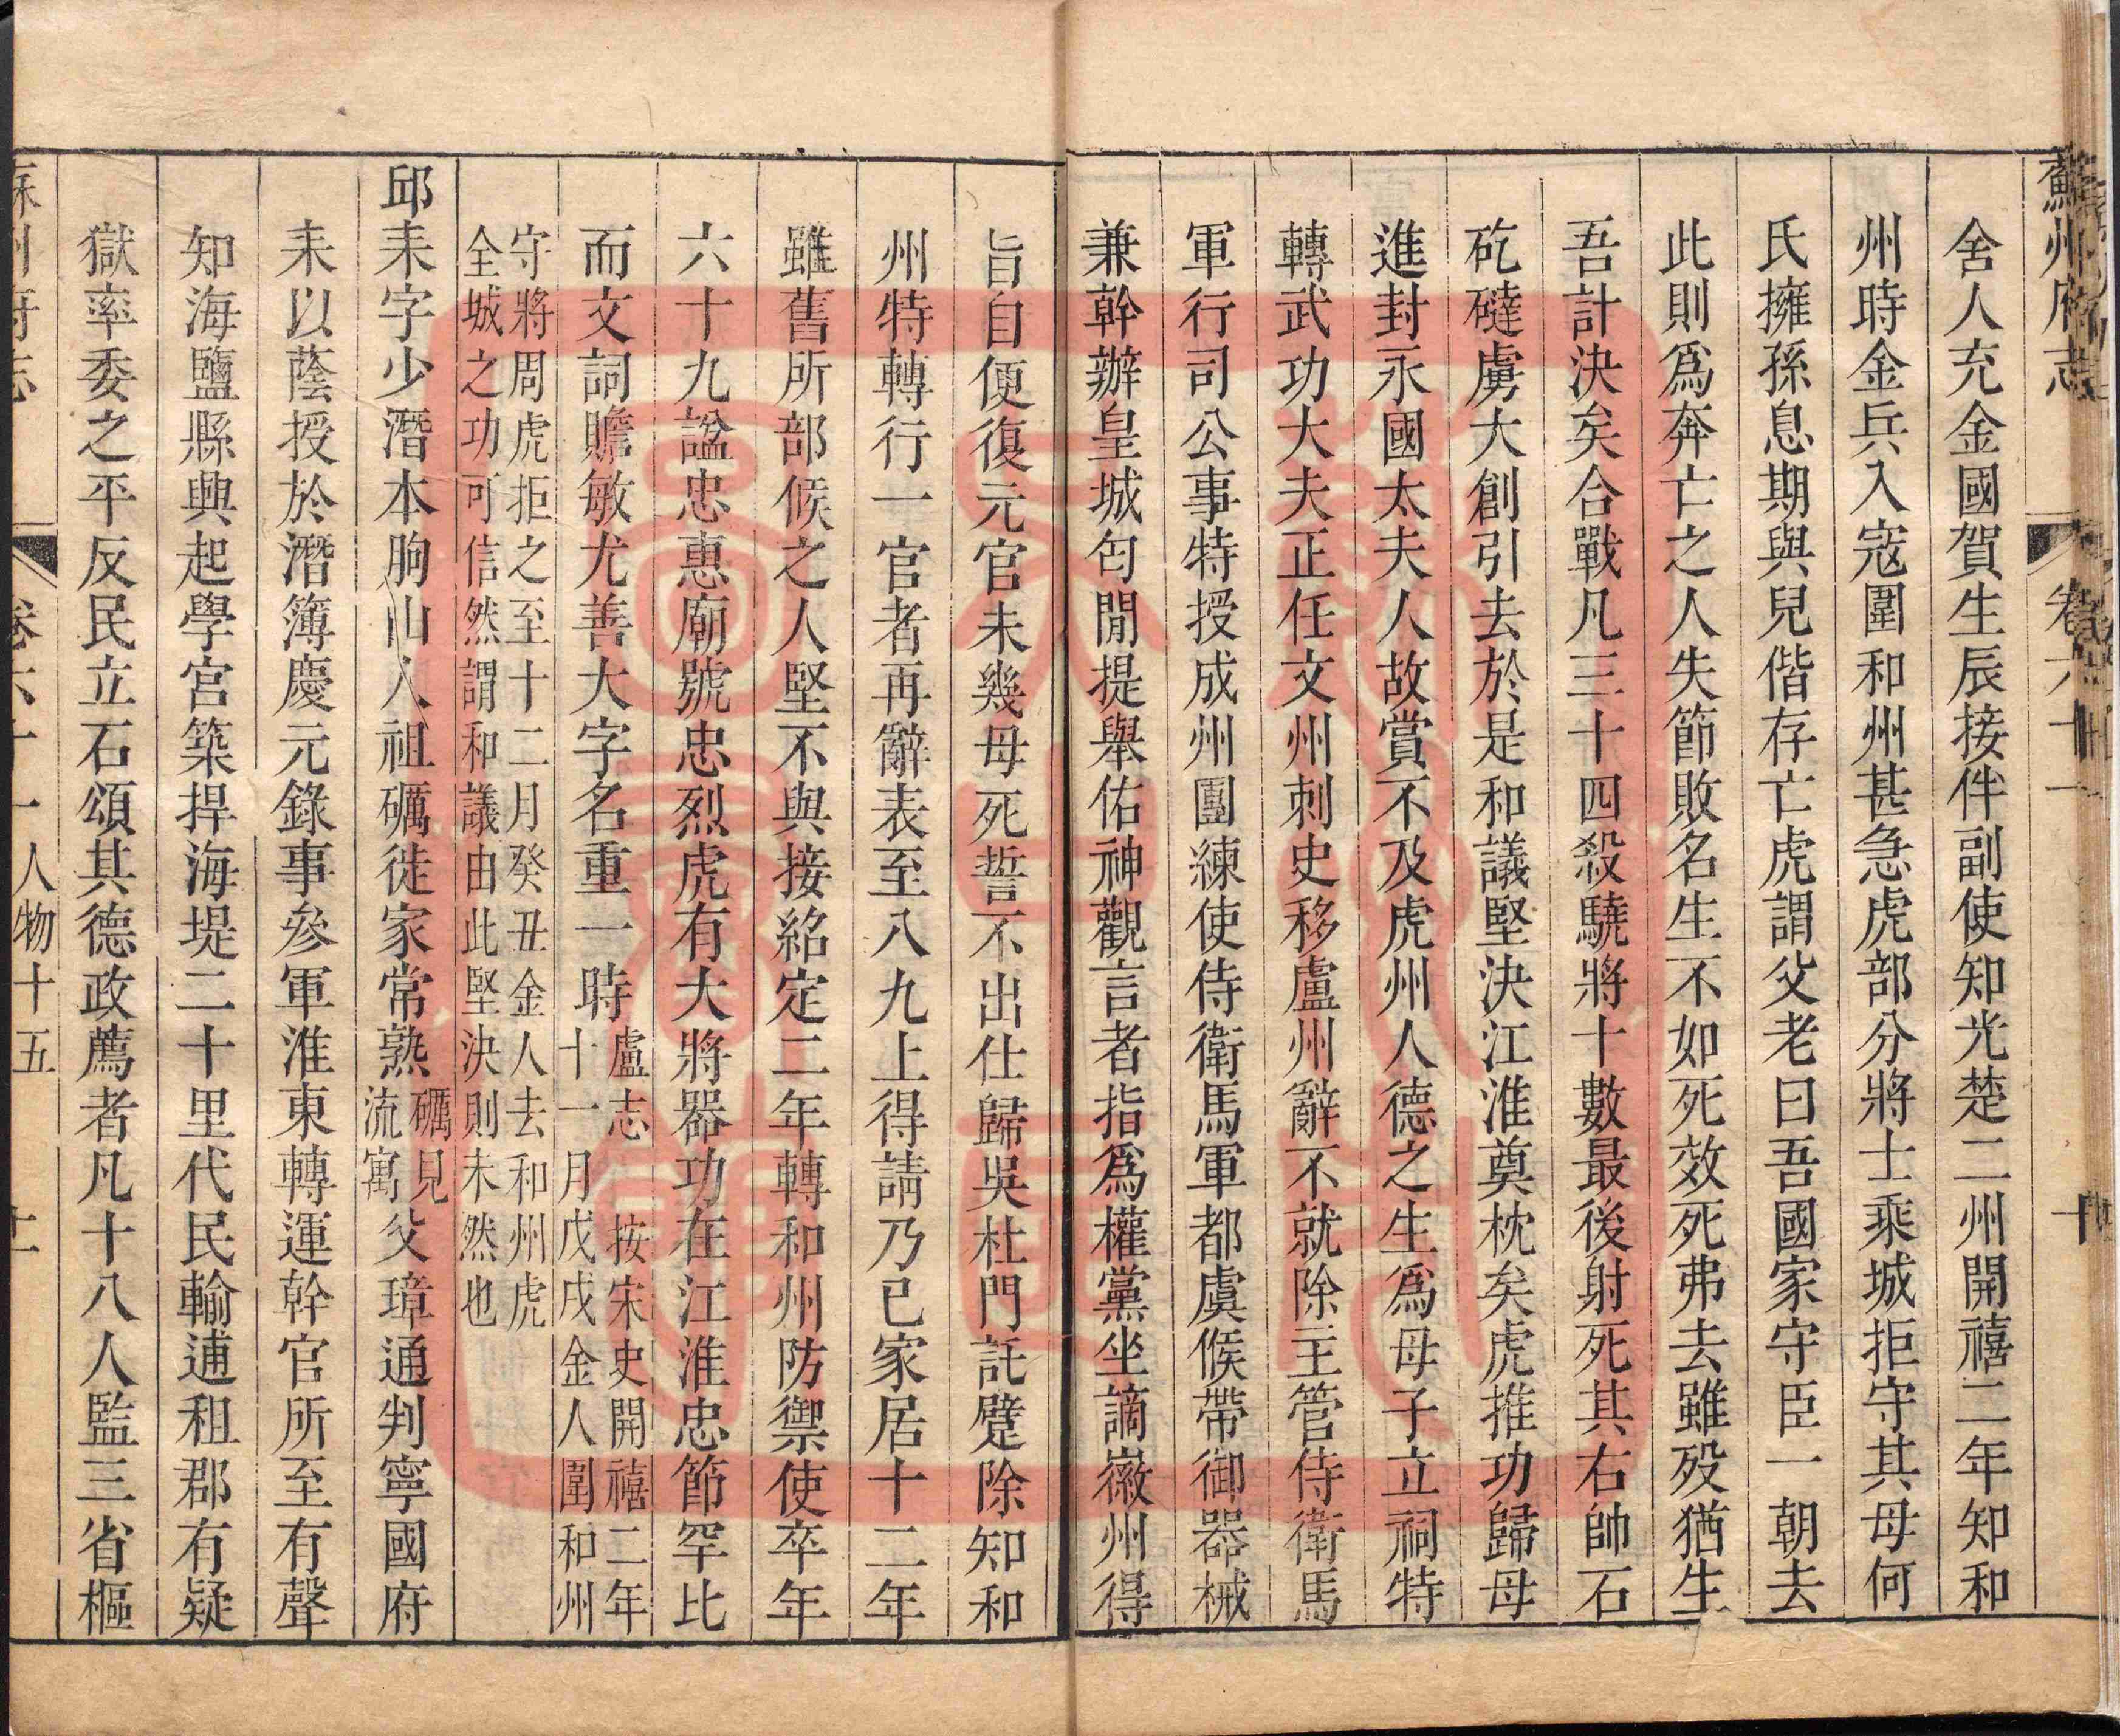 蘇州府志 卷六十一 十
舍人充金國賀生辰接伴副使知光楚二州開禧二年知和
州時金兵入寇圍和州甚急虎部分將士乘城拒守其母何
氏擁孫息期與兒偕存亡虎謂父老曰吾國家守臣一朝去
此則爲奔亡之人失節敗名生不如死效死弗去雖歿猶生
吾計決矣合戰凡三十四殺驍將十數最後射死其右帥石
矻𥗉虜大創引去於是和議堅決江淮奠枕矣虎推功歸母
進封永國太夫人故賞不及虎州人德之生爲母子立祠特
轉武功大夫正任文州刺史移盧州辭不就除主管侍衛馬
軍行司公事特授成州團練使侍衛馬軍都虞候帶御器械
兼幹辦皇城勾閒提舉佑神觀言者指爲權黨坐謫徽州得
旨自便復元官未幾母死誓不出仕歸吳杜門託躄除知和
州特轉行一官者再辭表至八九上得請乃已家居十二年
雖舊所部候之人堅不與接紹定二年轉和州防禦使卒年
六十九諡忠惠廟號忠烈虎有大將器功在江淮忠節罕比
而文詞贍敏尤善大字名重一時盧志 按宋史開禧二年
十一月戊戌金人圍和州
守將周虎拒之至十二月癸丑金人去和州虎
全城之功可信然謂和議由此堅決則未然也
邱耒字少潛本朐山人祖礪徙家常熟礪見
流寓父璋通判寧國府
耒以蔭授於潛簿慶元錄事參軍淮東轉運幹官所至有聲
知海鹽縣興起學宮築捍海堤二十里代民輸逋租郡有疑
獄率委之平反民立石頌其德政薦者凡十八人監三省樞
蘇州府志 卷六十一 人物十五